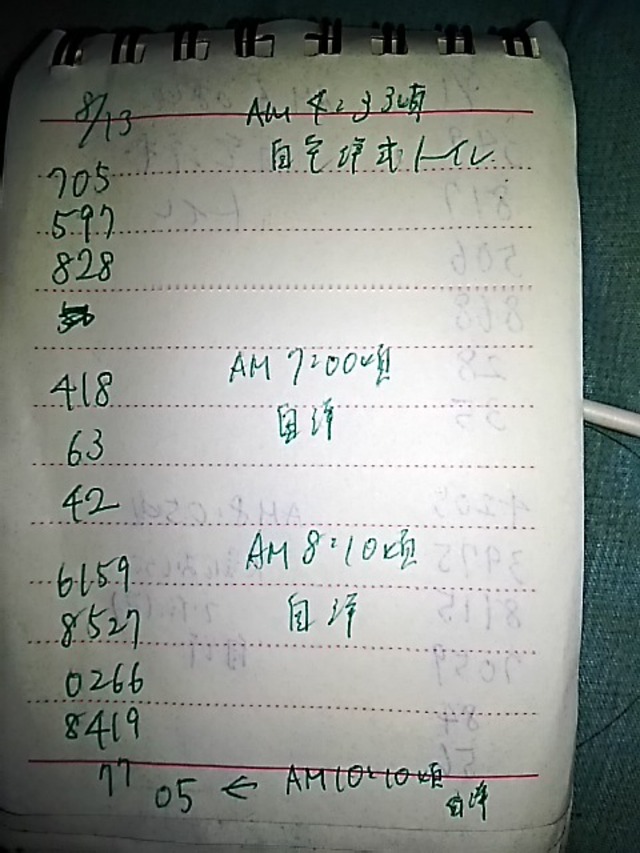 8/13
AM 4:33頃
自宅洋式トイレ
705
597
828
AM 7:00頃
418
自洋
63
42
AM 8:10頃
6159
自洋
8527
0266
8419
77
05 ← AM10:10頃
自洋